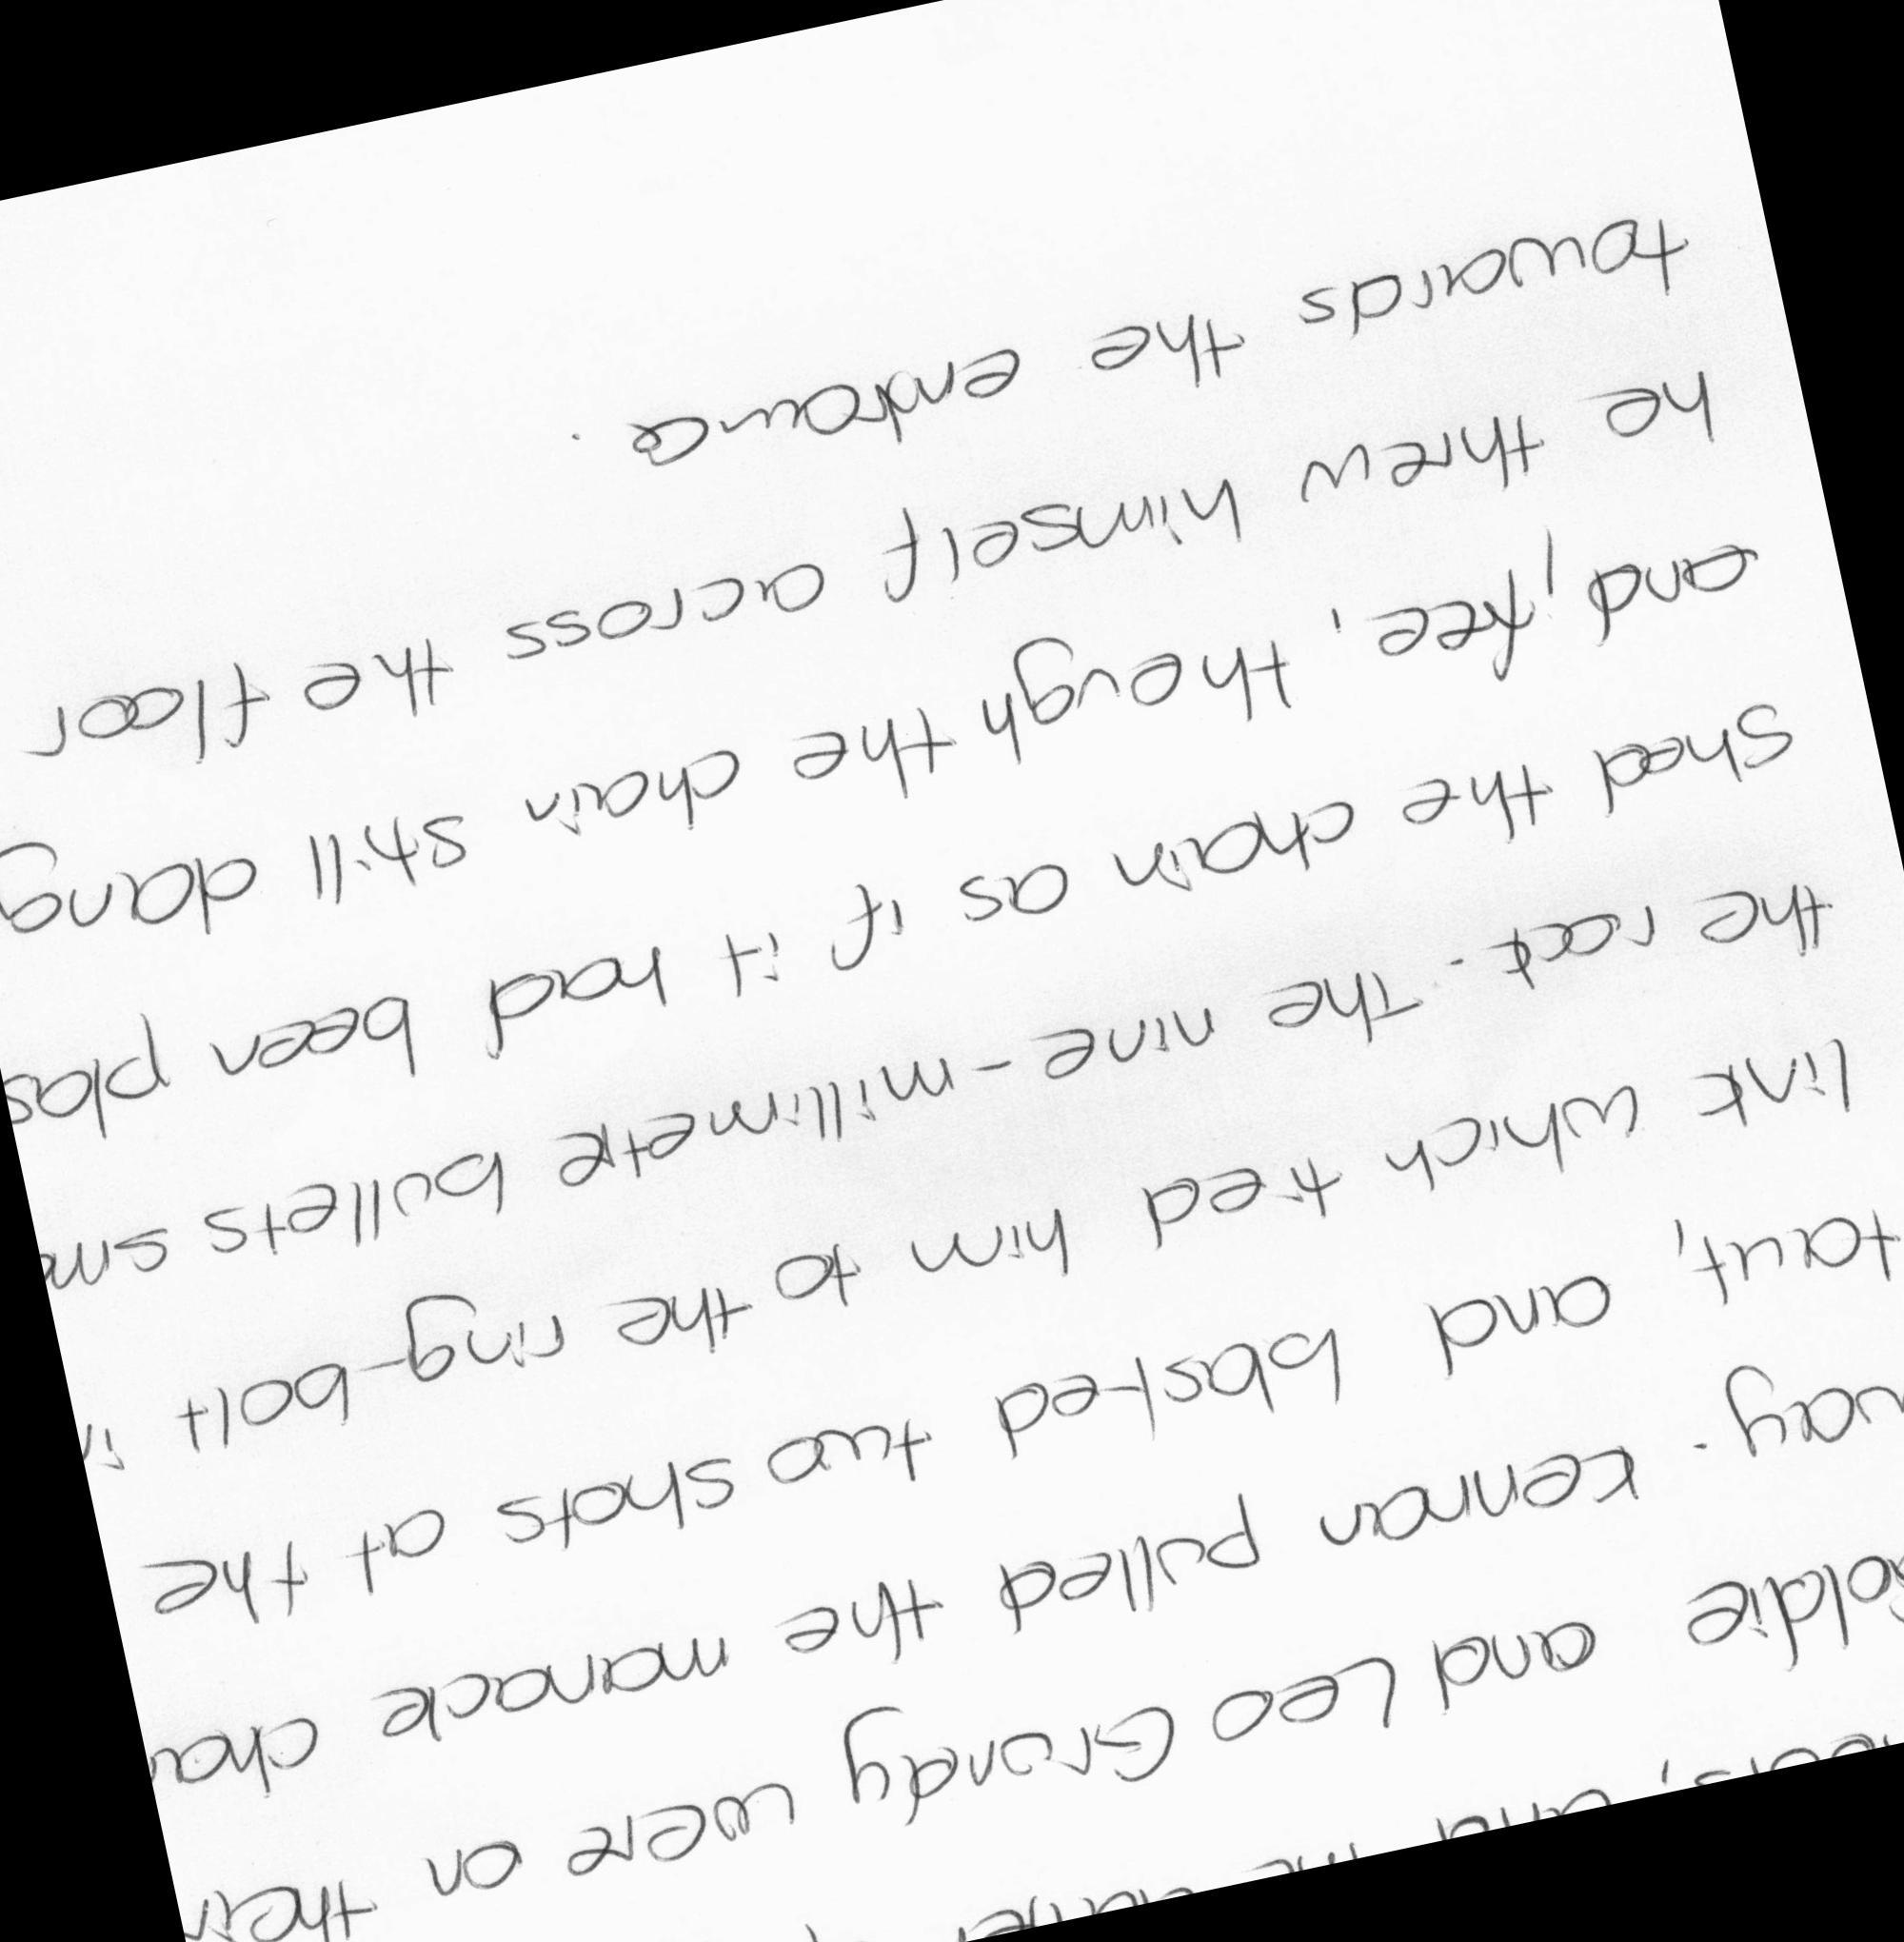 and
Goldie and Leo Grundy were on their
way. Kennan pulled the manacle
taut, and blasted two shots at the
link which tied him to the ring-bolt
the rock. The nine-millimetre bullets
Shed the chain as if it had been
and, free, though the chain still
he threw himself across the floor
towards the entrance.